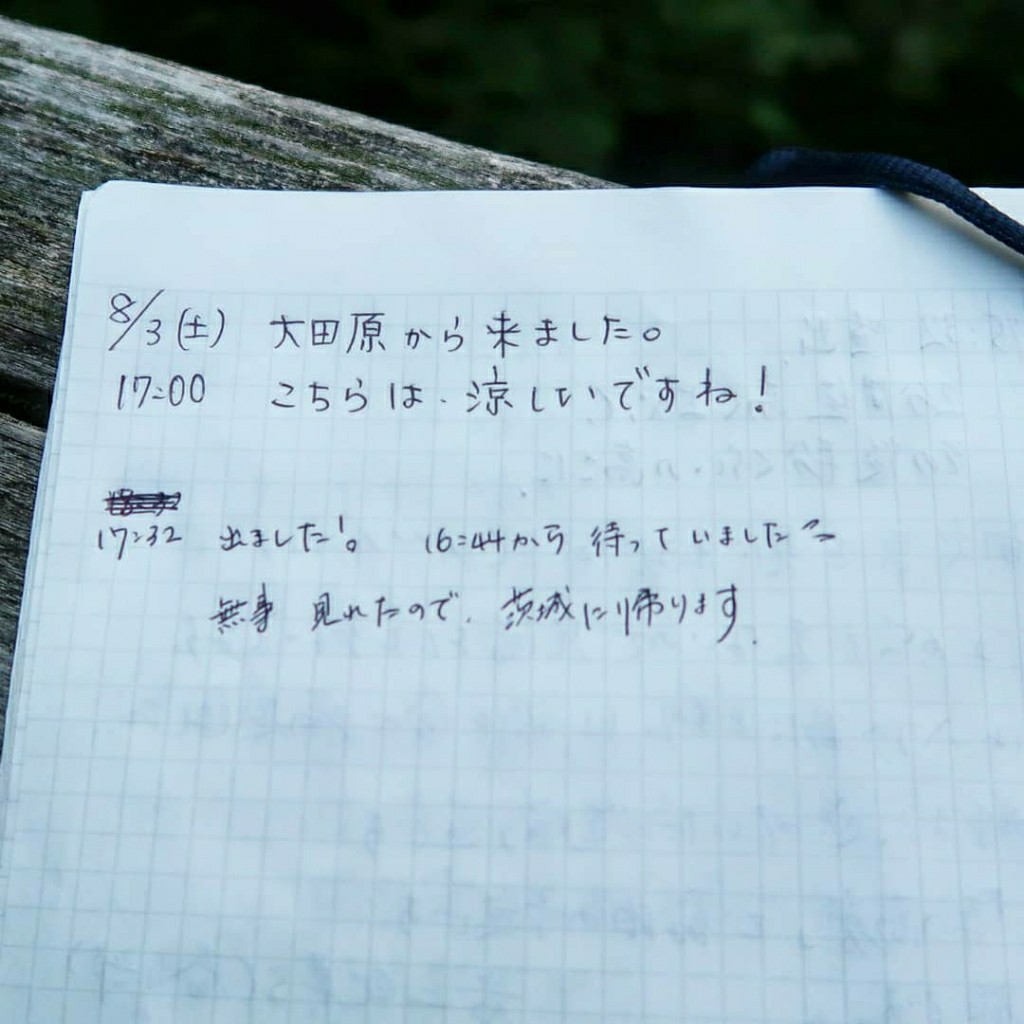 8/3(土) 大田原から来ました。
17:00 こちらは、涼しいですね!
17:32 出ました!。 16:44から 待っていました〜
無事 見れたので、茨城に帰ります.